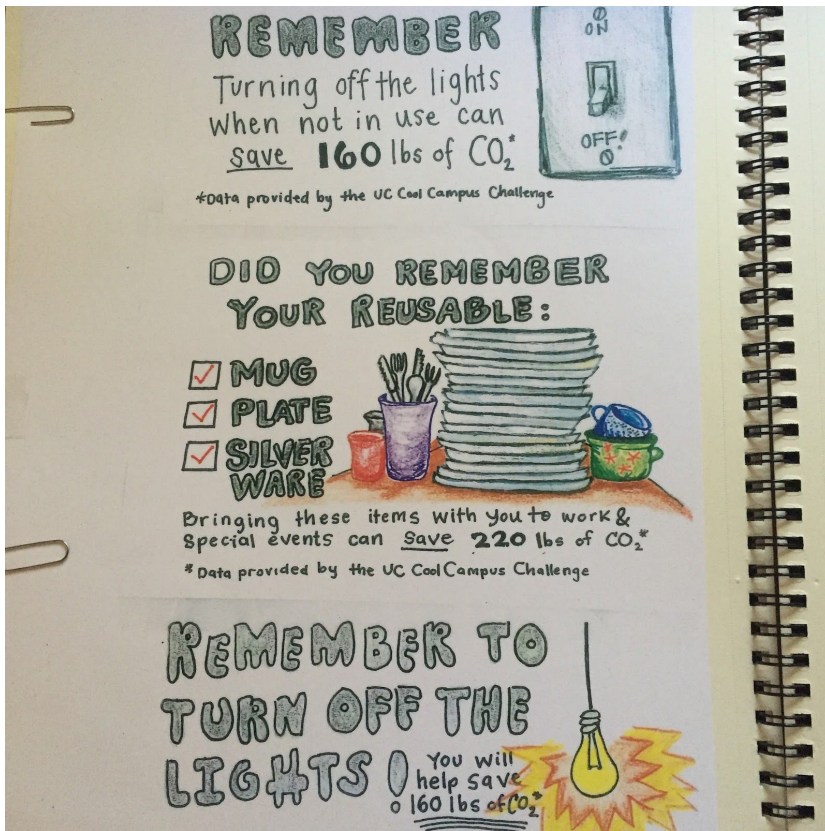 REMEMBER
ON
Turning off the lights
when not in use can
save 160 lbs of CO₂*
OFF!
*Data provided by the UC Cool Campus Challenge
DID YOU REMEMBER
YOUR REUSABLE:
MUG
PLATE
SILVER
WARE
Bringing these items with you to work &
special events can save 220 lbs of CO₂*
* Data provided by the UC Cool Campus Challenge
REMEMBER TO
TURN OFF THE
LIGHTS!
You will
help save
160 lbs of CO₂*